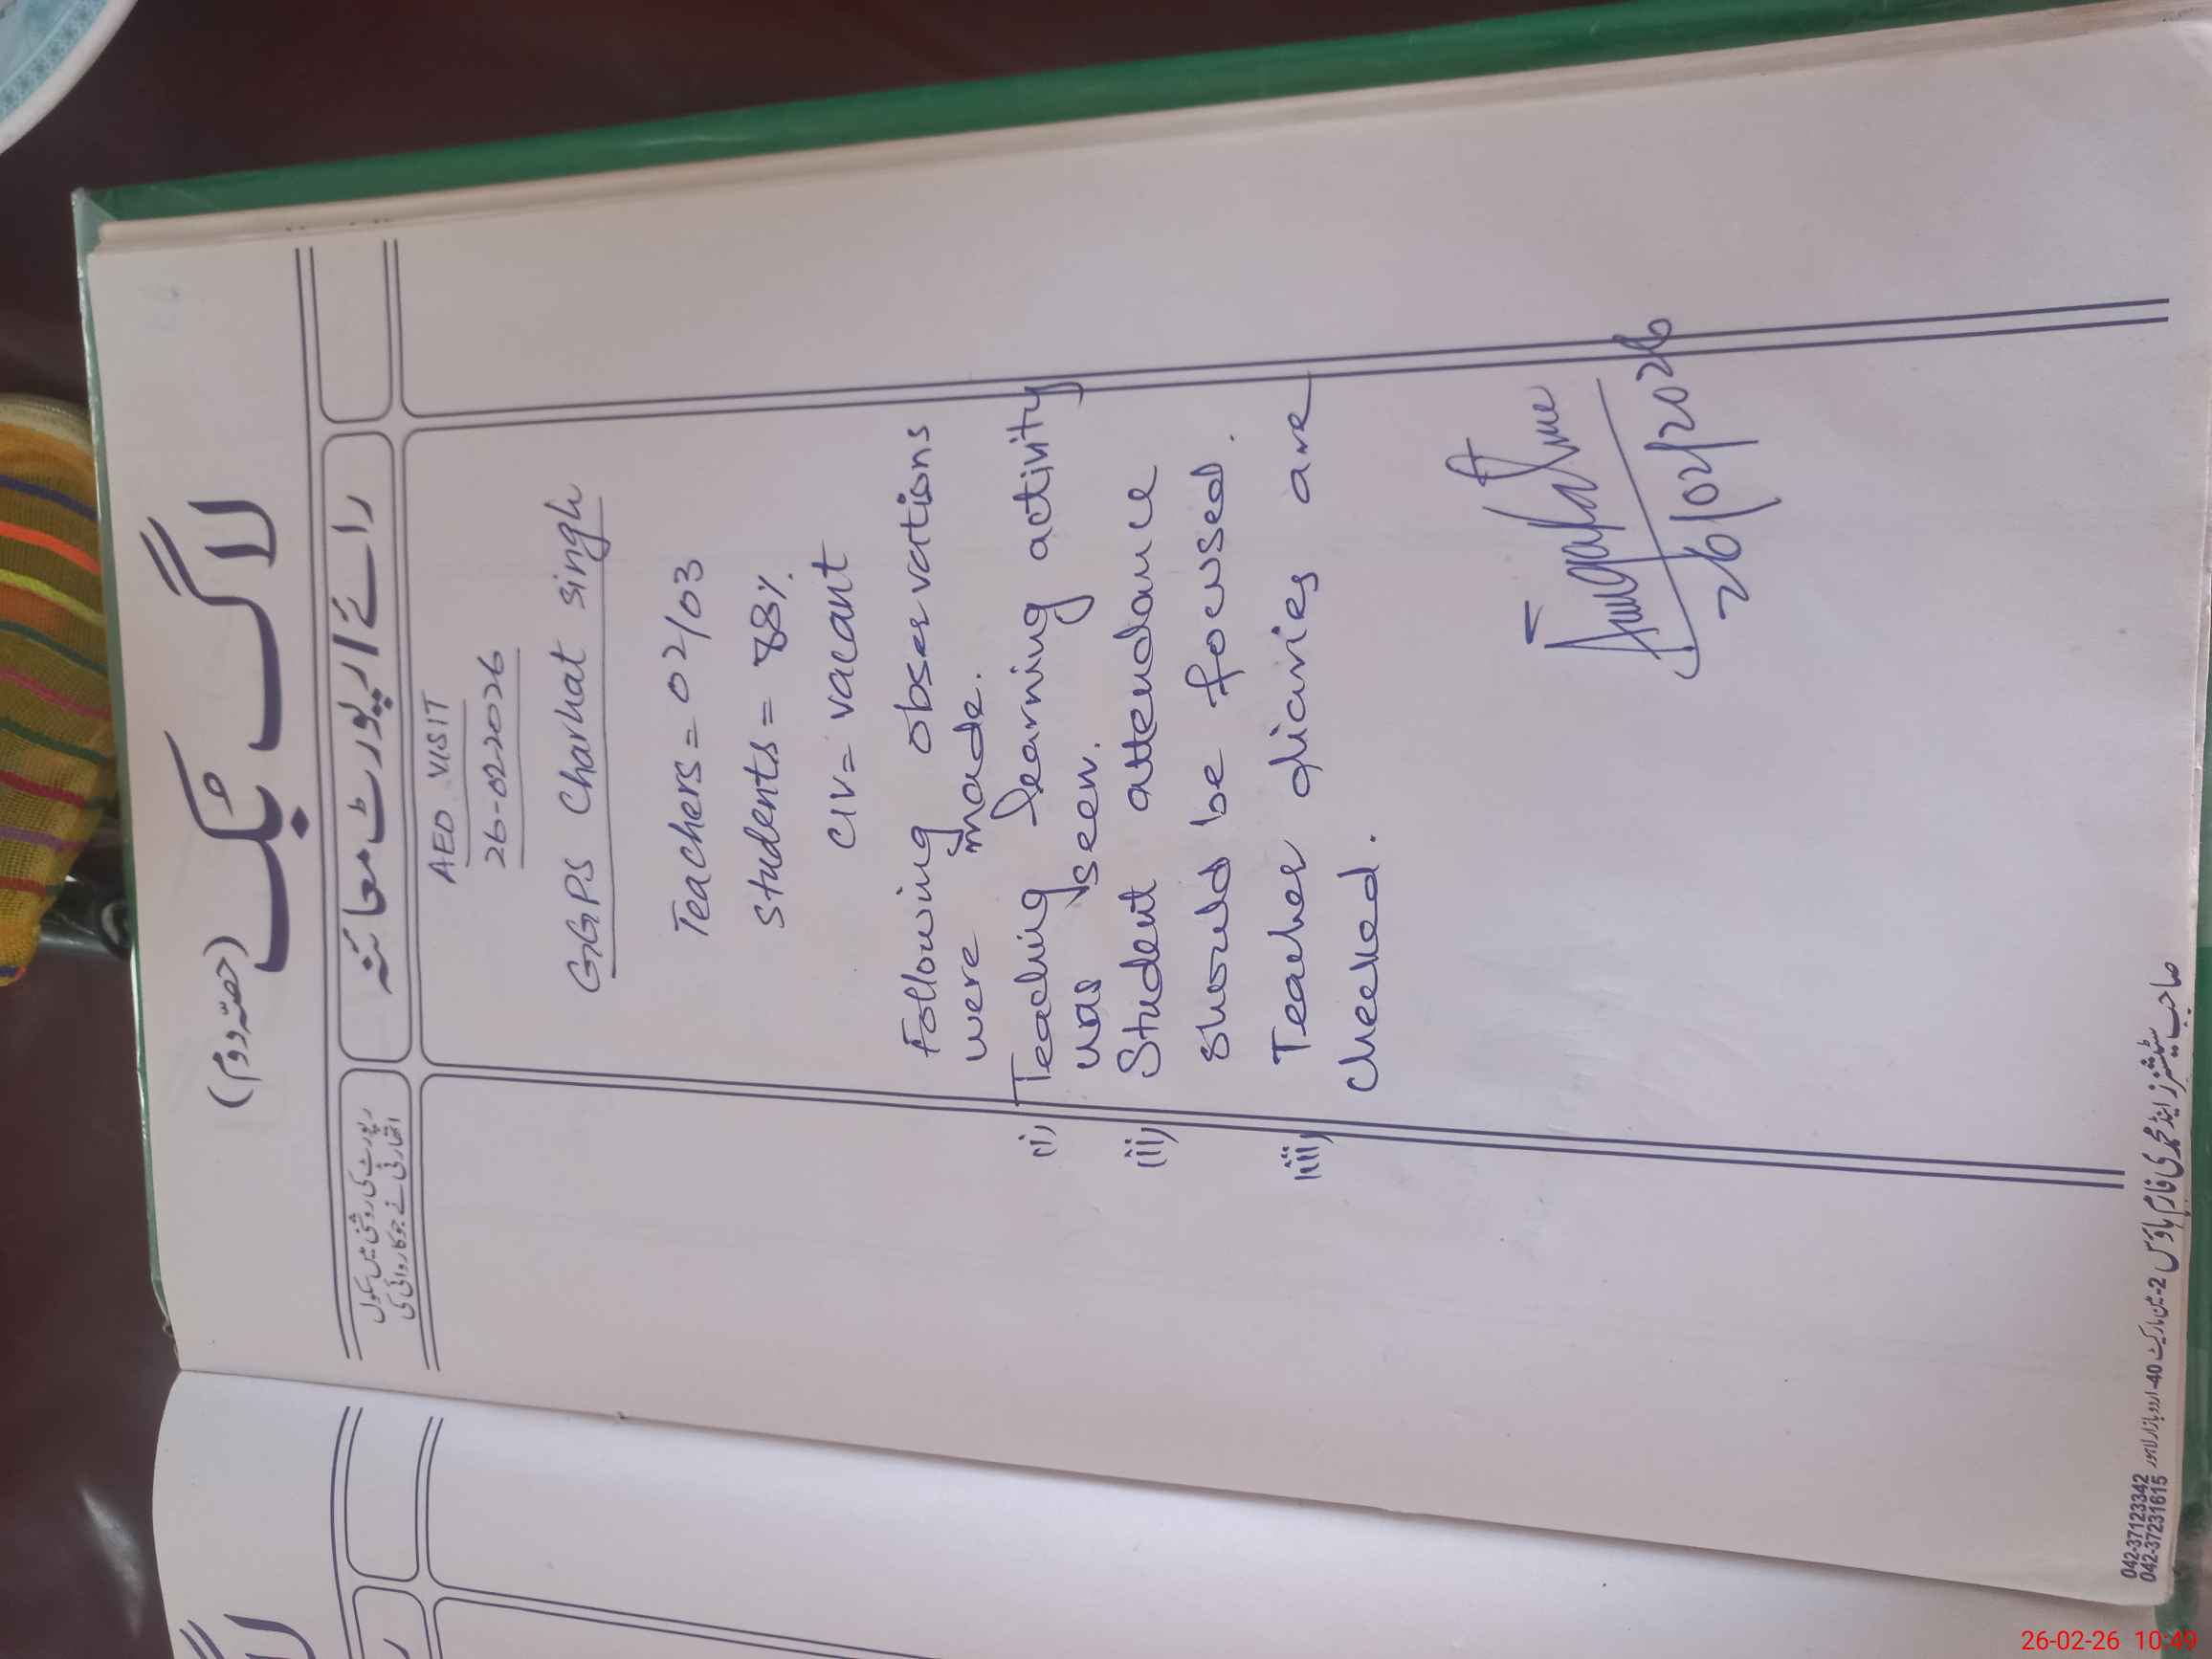 لاگ بُک (حصّہ دوم)
رپورٹ کی روشنی میں سکول
اتھارٹی نے جو کاروائی کی
رائے / رپورٹ معائنہ
AEO VISIT
26-02-2026
GGPS Charhat singh
Teachers = 02/03
Students = 88%
CIV = vacant
Following observations
were made.
(i) Teaching learning activity
was seen.
(ii) Student attendance
should be focused.
(iii) Teacher diaries are
checked.
26/02/2026
صاحب سٹیشنرز اینڈ محمدی فارم ہاؤس 2-مین مارکیٹ 40-اردو بازار لاہور
042-37123342
042-37231615
26-02-26 10:49